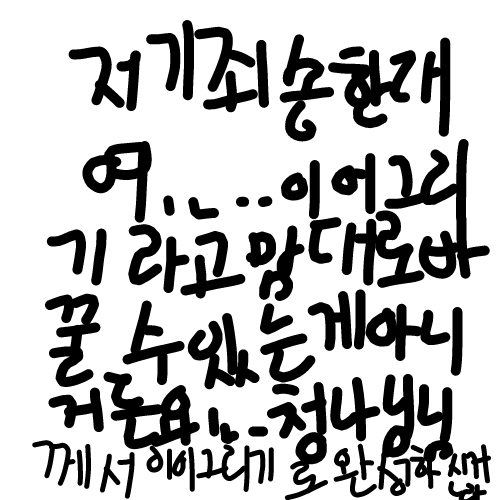 저기죄송한래
여.....이어그리
기라고맘대로바
꿀수있는게아니
거든요....청나님
께서이어그리기로완성하신거